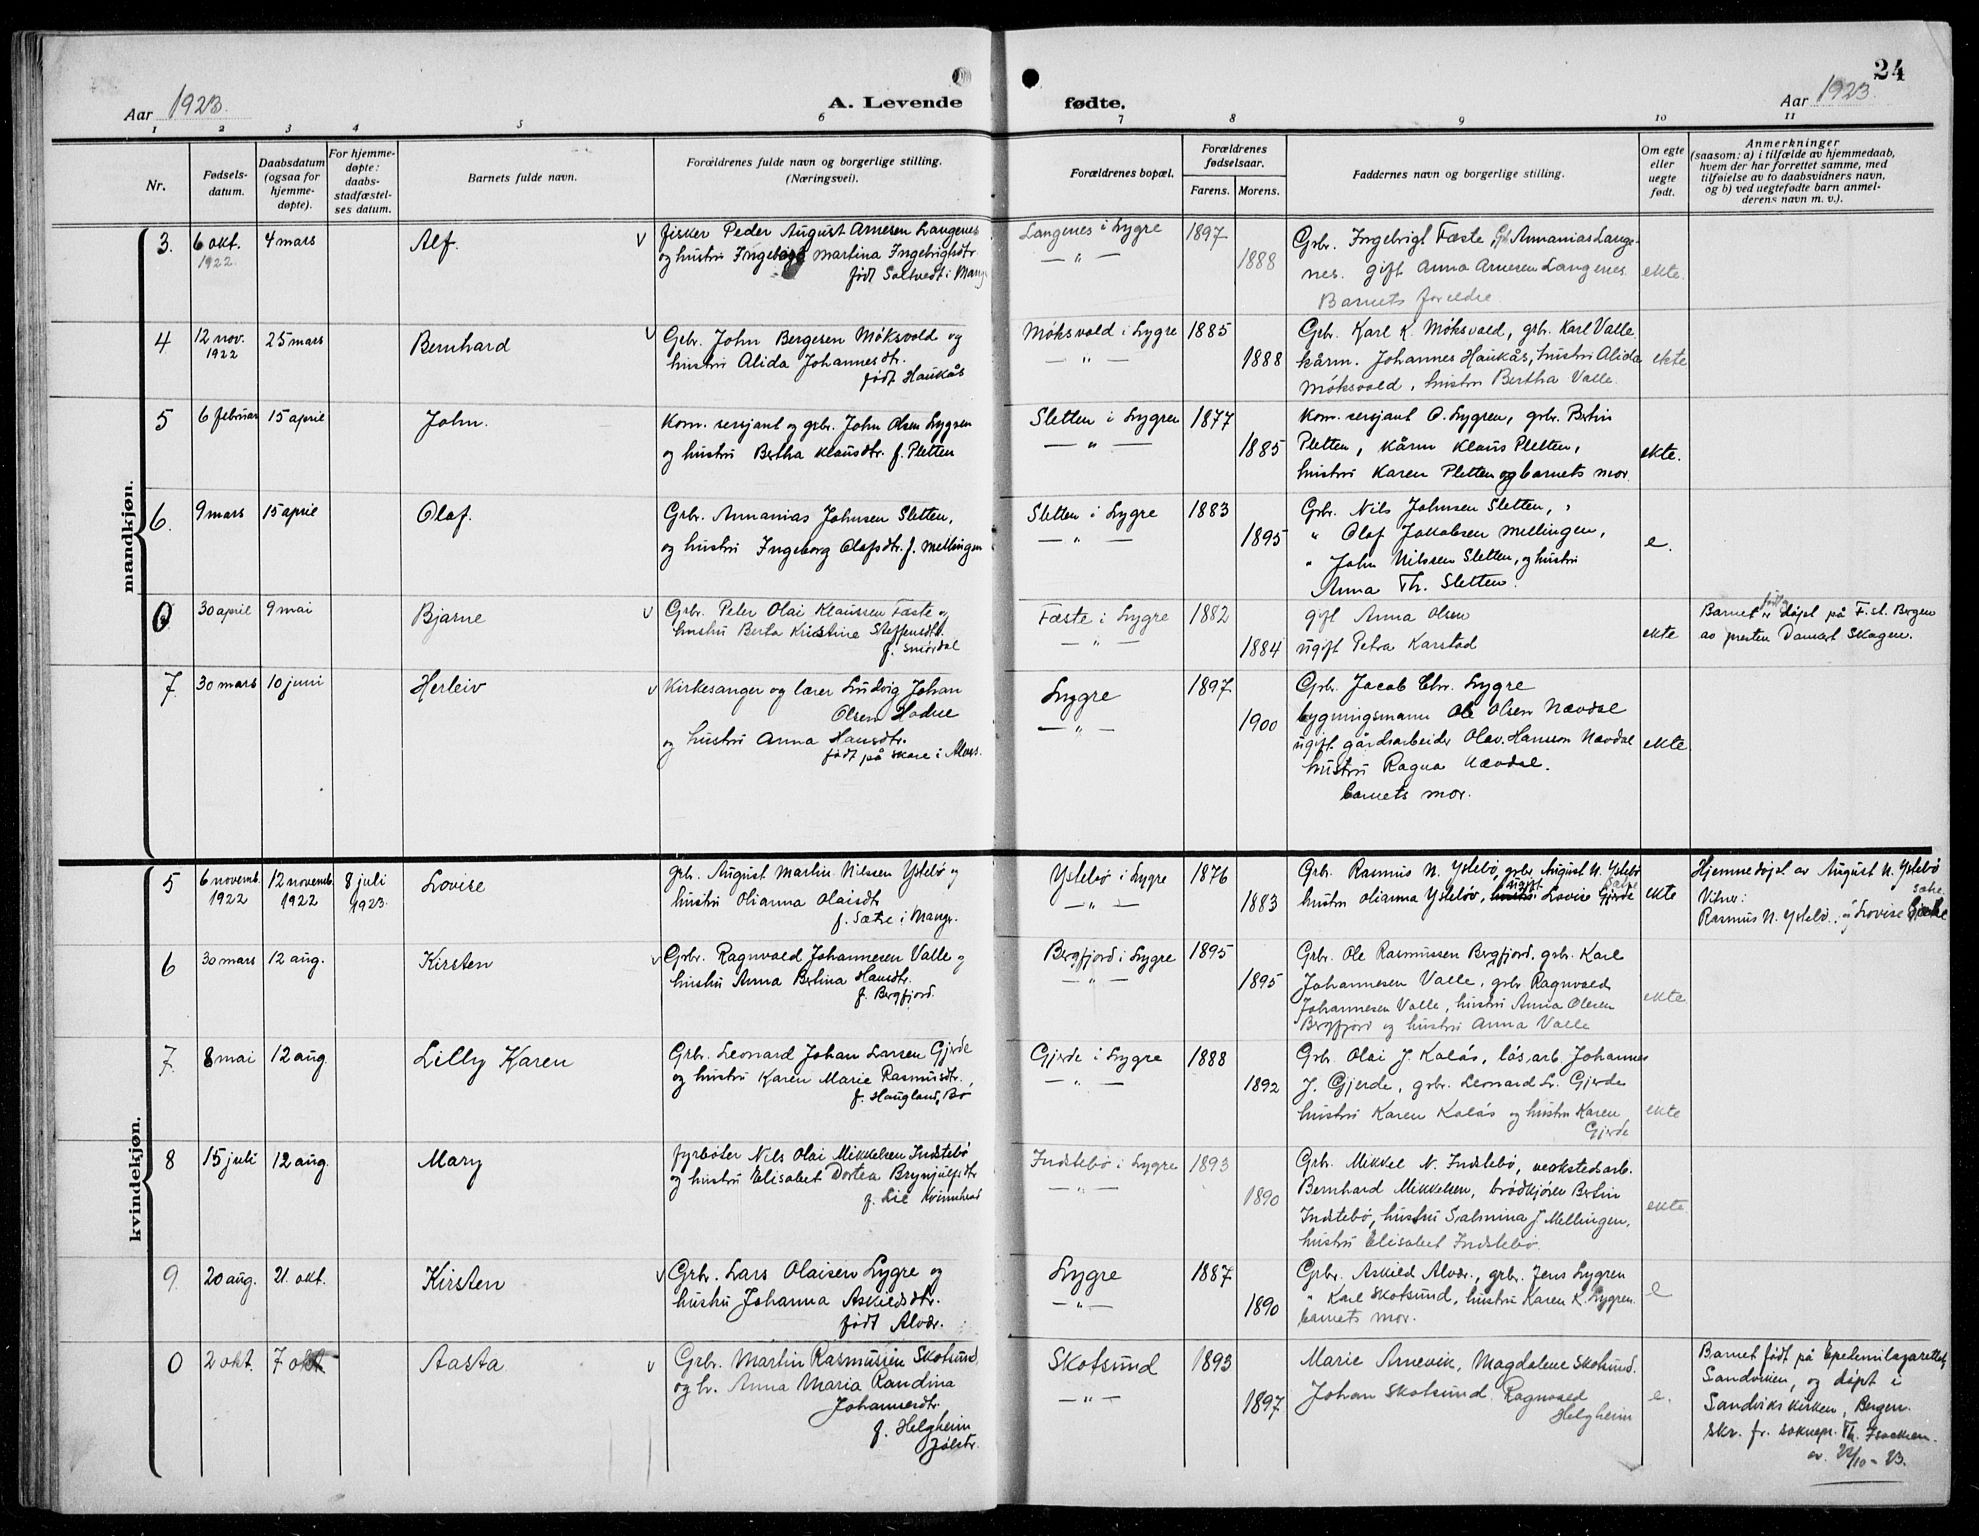 24
Aar 1923.
A. Levende
fødte.
Aar 1923.
1 2 3 4 5 6 7 8 9 10 11
Nr.
Fødsels-
datum.
Daabsdatum
(ogsaa for
hjemme-
døpte).
For hjemme-
døpte:
daabs-
stadfæstel-
ses datum.
Barnets fulde navn.
Forældrenes fulde navn og borgerlige stilling.
(Næringsvei).
Forældrenes bopæl.
Forældrenes
fødselsaar.
Farens. Morens.
Faddernes navn og borgerlige stilling.
Om egte
eller
uegte
født.
Anmerkninger
(saasom: a) i tilfælde av hjemmedaab,
hvem der har forrettet samme, med
tilføielse av to daabsvidners navn,
og b) ved uegtefødte barn anmel-
derens navn m. v.).
mandkjøn.
3. 6 okt. 1922. 4 mars Alf. v
fisker Peder August Arnesen Langenes
og hustru Ingeborg Martina Ingebrigtsdtr
født Soltvedt i Mang
Langenes i Lygre 1897
— " — 1888
Grbr. Ingebrigt Fæste, Ananias Lange-
nes. gift Anna Arnesen Langenes
Barnets foreldre.
ekte.
4 12 nov. 1922 25 mars Bernhard v
Grbr. John Bergesen Møksvold og
hustru Alida Johannesdtr.
født Haukås
Møksvold i Lygre 1885
— " — 1888
Grbr. Karl K. Møksvold, grbr. Karl Valle
kårm. Johannes Haukås, hustru Alida
Møksvold, hustru Bertha Valle.
ekte
5 6 februar 15 april John.
Kom. sersjant og grbr. John Olsen Lygren
og hustru Bertha Klausdtr. f. Pletten
Sletten i Lygren 1877
— " — 1885
Kom. sersjant O. Lygren, grbr. Bertin
Pletten, kårm Klaus Pletten,
hustru Karen Pletten og barnets mor.
ekte.
6. 9 mars 15 april Olaf.
Grbr. Annanias Johnsen Sletten,
og hustru Ingeborg Olafsdtr. f. Mellingen
Sletten i Lygre 1883
— " — 1895
Grbr. Nils Johnsen Sletten,
" Olaf Jakobsen Mellingen,
" John Nilssen Sletten, og hustru
Anna Th. Sletten.
e.
0 30 april 9 mai Bjarne v
Grbr. Peter Olai Klaussen Fæste og
hustru Berta Kristine Steffensdtr.
f. Smørdal
Fæste i Lygre 1882
— " — 1884
gift Anna Olsen
ugift Petra Karstad
ekte
Barnet er født og døpt på F. st. Bergen
av presten Skagen.
7. 30 mars 10 juni Herleiv v
Kirkesanger og lærer Ludvig Johan
Olsen Hodne
og hustru Anna Hansdtr.
født på Skare i Alvers.
Lygre 1897
— " — 1900
Grbr. Jacob Chr. Lygre
bygningsmann Ole Olsen Nævdal
ugift gårdsarbeider Olav Hansson Nævdal
hustru Ragna Nævdal.
barnets mor.
ekte.
kvindekjøn.
5 6 novemb. 1922 12 novemb. 1922 8 juli 1923. Lovise
grbr. August Martin Nilsen Ystebø og
hustru Olianna Olaisdtr
f. Sætre i Mangr.
Ystebø i Lygre 1876
— " — 1883
Grbr. Rasmus N. Ystebø, grbr. August N. Ystebø
hustru Olianna Ystebø, ugift hustru Lovise Gjerde Sætre
ekte
Hjemmedøpt av August N. Ystebø
Vitner:
Rasmus N. Ystebø, og Lovise Sætre
6 30 mars 12 aug. Kirsten v
Grbr. Ragnvald Johannesen Valle og
hustru Anna Bertina Hansdtr.
f. Bergfjord.
Bergfjord i Lygre 1895
— " — 1895
Grbr. Ole Rasmussen Bergfjord. grbr. Karl
Johannesen Valle, grbr Ragnvald
Johannesen Valle, hustru Anna Olesen
Bergfjord og hustru Anna Valle
ekte
7. 8 mai 12 aug. Lilly Karen
Grbr. Leonard Johan Larsen Gjerde
og hustru Karen Marie Rasmusdtr.,
f. Haugland, Bø
Gjerde i Lygre 1888
— " — 1892
Grbr. Olai J. Kalås, løsarb. Johannes
J. Gjerde, grbr. Leonard L. Gjerde
hustru Karen Kalås og hustru Karen
Gjerde
ekte
8 15 juli 12 aug. Mary
fyrbøter Nils Olai Mikkelsen Indstebø
og hustru Elisabet Dortea Brynjulfsdtr
f. Lie Kvinnherad
Indstebø i Lygre 1893
— " — 1890
Grbr. Mikkel N. Indstebø, verkstedsarb.
Bernhard Mikkelsen, brødkjører Bertin
Indstebø, hustru Salmina J Mellingen,
hustru Elisabet Indstebø.
ekte.
9. 20 aug. 21. okt. Kirsten v
Grbr. Lars Olaisen Lygre og
hustru Johanna Askildsdtr.
født Alvær.
Lygre 1887
— " — 1890
Grbr. Askild Alvær., grbr. Jens Lygren
" Karl Skotsund, hustru Karen K. Lygren.
barnets mor.
e
0 2 okt. 7 okt Aasta v
Grbr. Martin Rasmussen Skotsund
og h. Anna Maria Randina
Johannesdtr.
f. Helgheim
Jølstr.
Skotsund 1893
— " — 1897
Marie Arnevik, Magdalene Skotsund.
Johan Skotsund. Ragnvald
Helgheim
e.
Barnet født på Epedemilazarettet,
Sandviken, og døpt i
Sandvikskirken, Bergen.
Skr. fr. soknepr. Th. Isachsen
av 22/10 - 23.